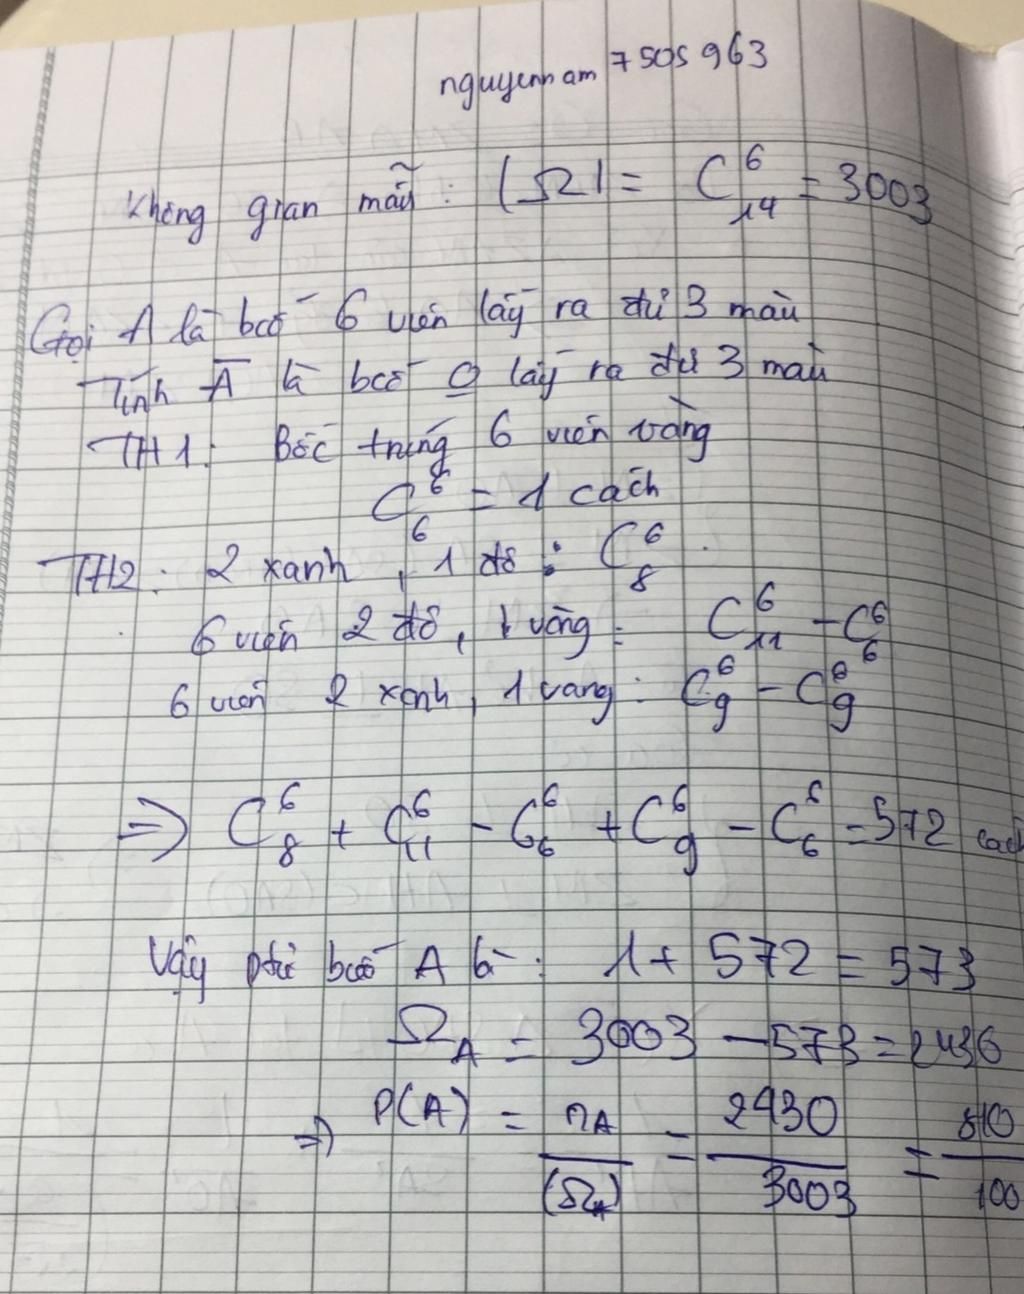 nguyennam7505963
Không gian mẫu : |Ω| = C⁶₁₄ = 3003
Gọi A là bcố 6 viên lấy ra đủ 3 màu
Tính A̅ là bcố O lấy ra đủ 3 màu
TH1: Bốc trúng 6 viên vàng
C⁶₆ = 1 cách
TH2: 2 xanh, 1 đỏ : C⁶₈.
6 viên 2 đỏ, 1 vàng : C⁶₁₁ - C⁶₆
6 viên 2 xanh, 1 vang : C⁶₉ - C⁶₉
=> C⁶₈ + C⁶₁₁ - C⁶₆ + C⁶₉ - C⁶₆ = 572 cách
Vậy ptử bcố A là : 1 + 572 = 573
Ω_A = 3003 - 573 = 2430
=> P(A) = n_A/|Ω_A| = 2430/3003 = 810/100